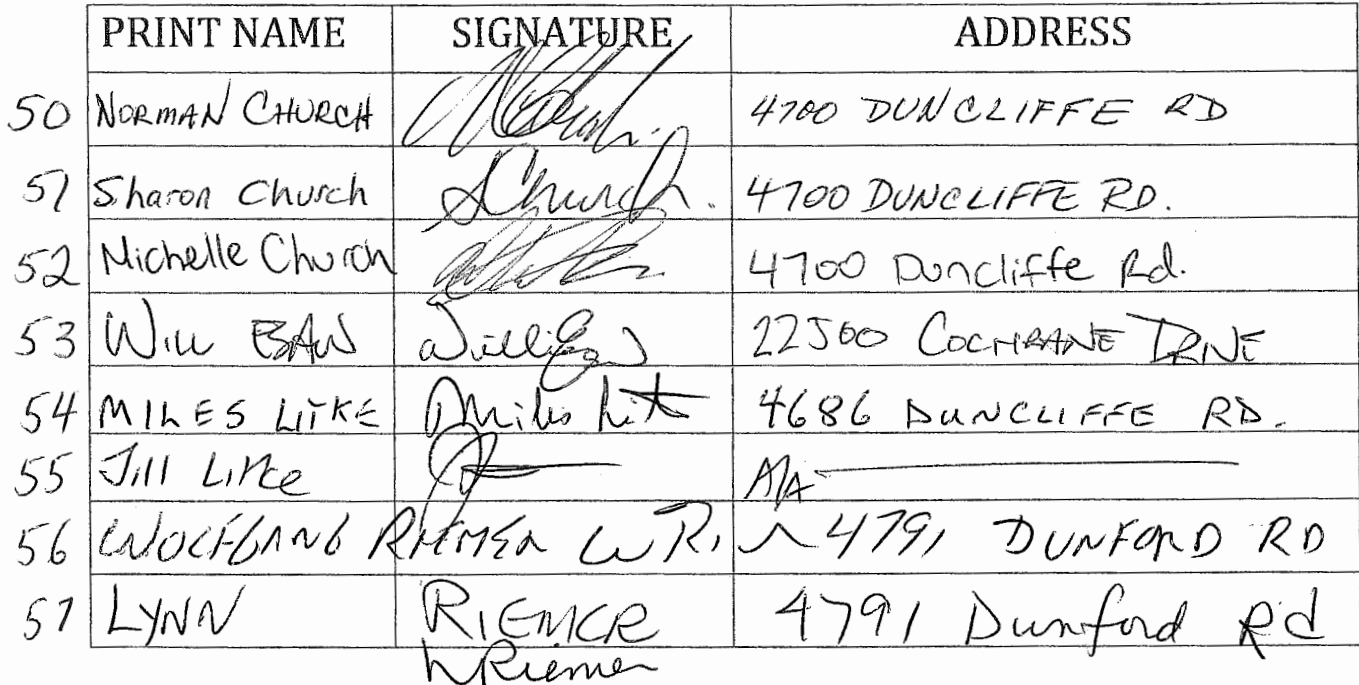 PRINT NAME SIGNATURE ADDRESS
50 NORMAN CHURCH 4700 DUNCLIFFE RD
51 Sharon Church SChurch. 4700 DUNCLIFFE RD.
52 Michelle Church 4700 Duncliffe Rd.
53 WILL 22500 COCHRANE DRIVE
54 MILES LITKE Miles Lit 4686 DUNCLIFFE RD.
55 Jill Litke A/A
56 WOLFGANG RIEMER W Ri 4791 DUNFORD RD
57 LYNN RIEMER 4791 Dunford Rd
LRiemer